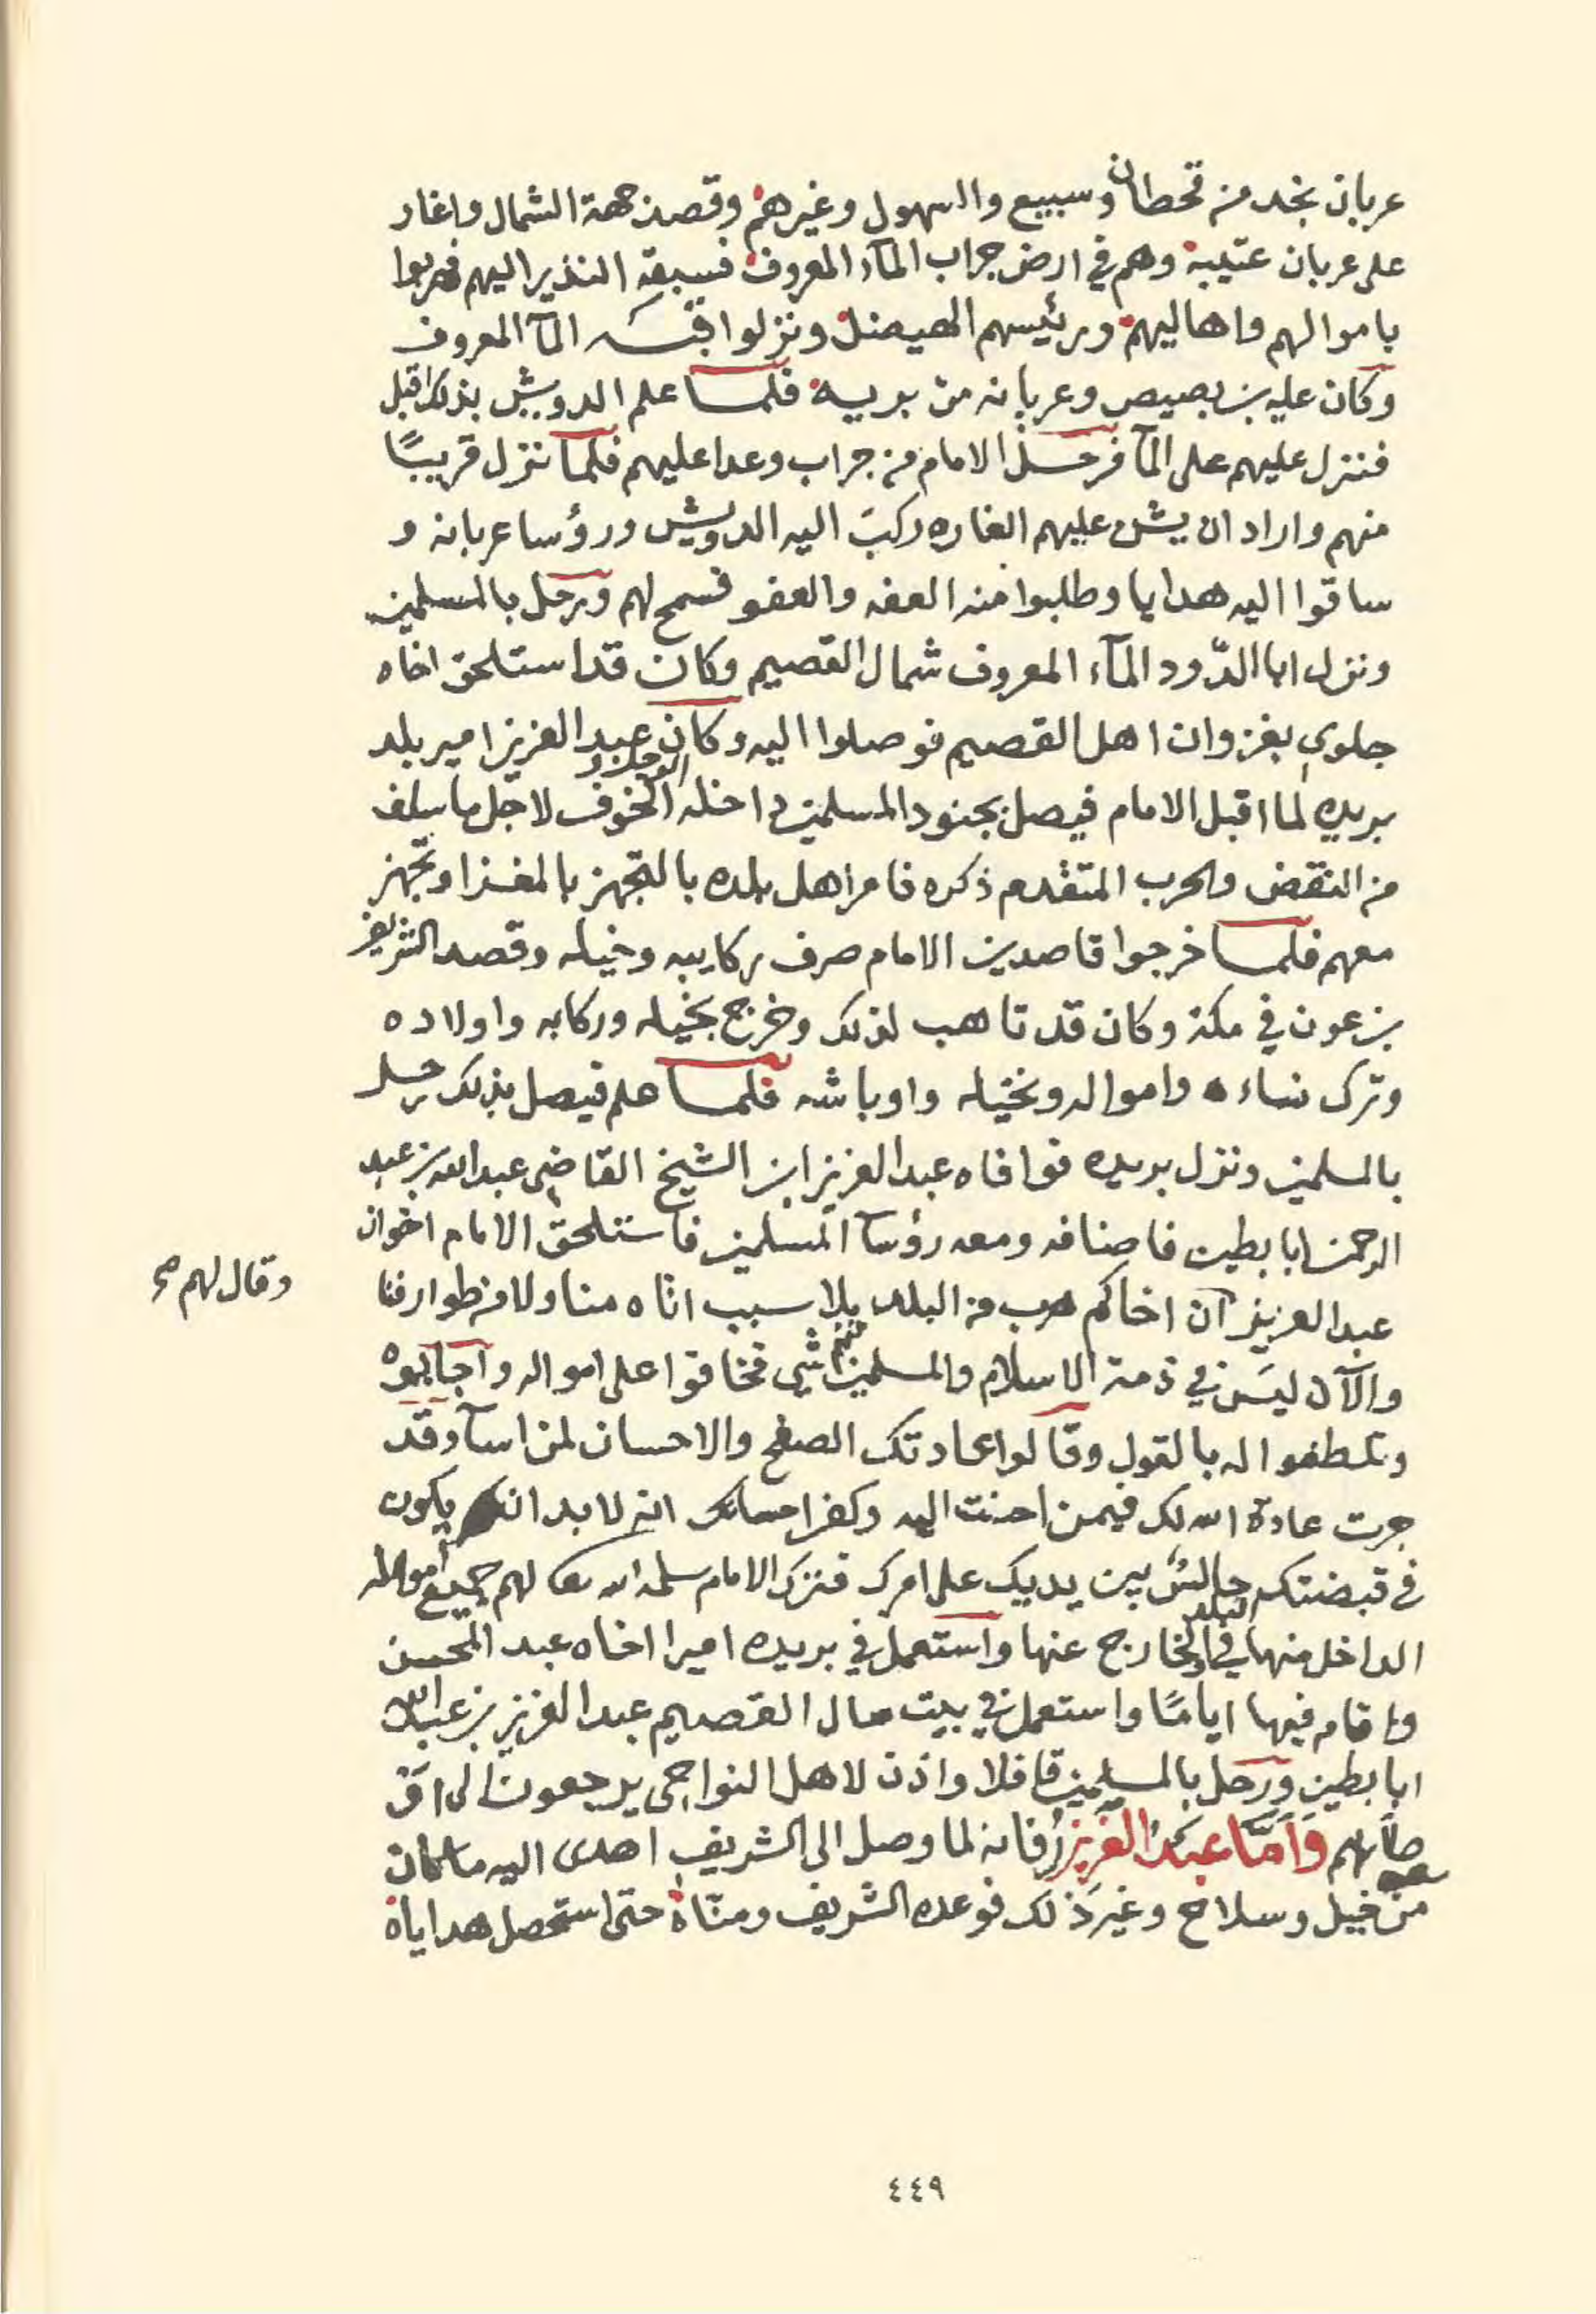 عربان نجد من قحطان وسبيع والسهول وغيرهم وقصد جهة الشمال واغار
على عربان عتيبة وهم في ارض جراب المآء المعروف فسبقه النذير اليهم فهربوا
باموالهم واهاليهم ورئيسهم الهيضل ونزلوا المآ المعروف
وكان عليه بن بصيص وعربانه من بريه فلما علم الدويش بذلك اقبل
فنزل عليهم على المآ فرحل الامام من جراب وعدا عليهم فلما نزل قريبًا
منهم واراد ان يشن عليهم الغاره ركب اليه الدويش ورؤسا عربانه و
ساقوا اليه هدايا وطلبوا منه العفه والعفو فسمح لهم ورحل بالمسلمين
ونزل ابا الدّود المآء المعروف شمال القصيم وكان قد استلحق اخاه
جلوي بغزوان اهل القصيم فوصلوا اليه وكان عبد العزيز امير بلد
بريده لما اقبل الامام فيصل بجنود المسلمين داخله الوجل والخوف لاجل ما سلف
من النقض والحرب المتقدم ذكره فامر اهل بلده بالتجهز بالمغزا وتجهز
معهم فلما خرجوا قاصدين الامام صرف ركايبه وخيله وقصد الشريف
بن عون في مكة وكان قد تاهب لذلك وخرج بخيله وركابه واولاده
وترك نساءه وامواله ونخيله واوباشه فلما علم فيصل بذلك رحل
بالمسلمين ونزل بريده فوافاه عبد العزيز ابن الشيخ القاضي عبد الله بن عبد
الرحمن ابابطين فاضافه ومعه رؤسآ المسلمين فاستلحق الامام اخوان
عبد العزيز وقال لهم صح آن اخاكم هرب من البلد بلا سبب اتاه منا ولا من طوارفنا
والآن ليس في ذمة الاسلام والمسلمين منه شي فخافوا على امواله واجابوه
وتلطفوا له بالقول وقالوا عادتك الصفح والاحسان لمن اسآ وقد
جرت عادة الله لك فيمن احسنت اليه وكفر احسانك انه لا بد ان يكون
في قبضتك جالسٌ بين يديك على امرك فترك الامام سلمه الله تعا لهم جميع امواله
الداخل منها في البلد والخارج عنها واستعمل في بريده اميرا اخاه عبد المحسن
واقام فيها ايامًا واستعمل في بيت مال القصيم عبد العزيز بن عبد الله
ابابطين ورحل بالمسلمين قافلا واذن لاهل النواحي يرجعون الى
وامّا عبد العزيز فانه لما وصل الى الشريف اهدى اليه ما كان معه
من خيل وسلاح وغير ذلك فوعده الشريف ومنّاه حتى استحصل هداياه
٤٤٩